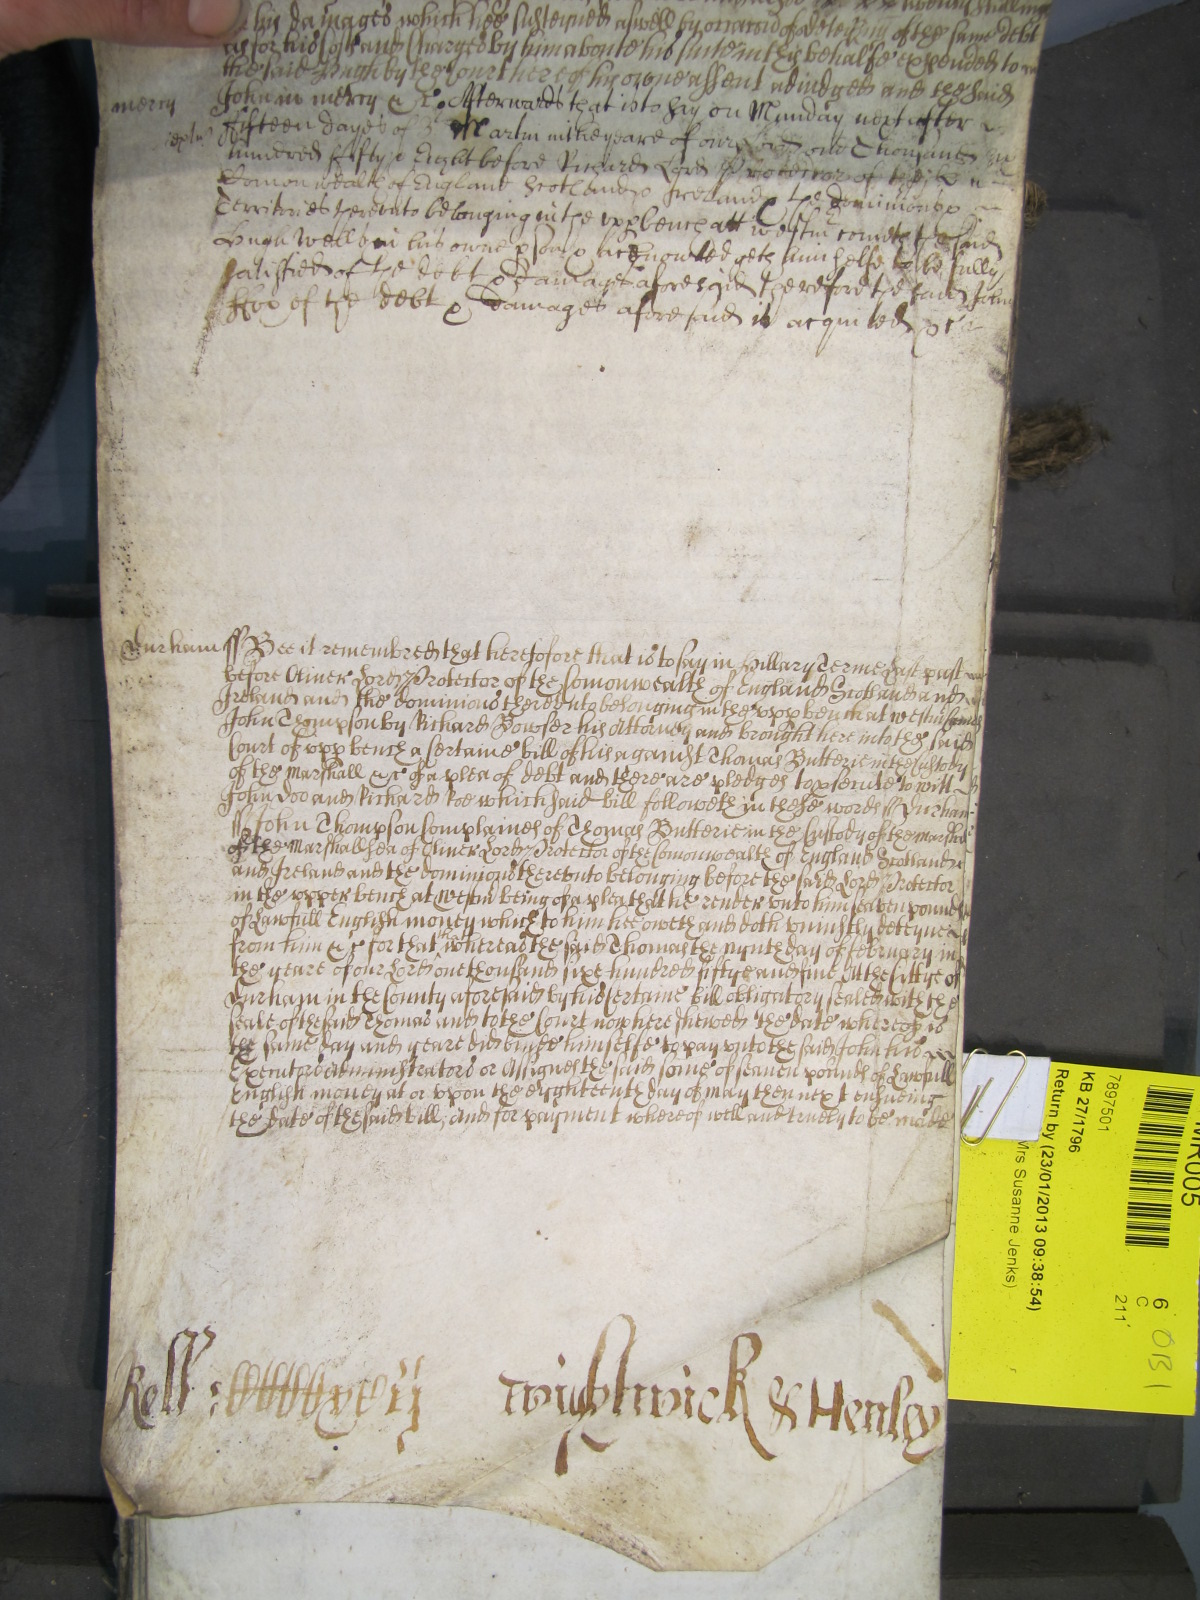 his damages which hee susteyned aswell by occacion of deteyning of the same debt
as for his costs and Charges by him aboute his suite in this behalfe expended to
the said Hugh by the Court here of his owne assent adiudged and the said
mercy John in mercy &c Afterwards that is to say on Munday next after
fifteen dayes of St Martin in the yeare of our Lord one Thousand
hundred fifty Eight before Richard Lord Protector of the
Comonwealth of England Scotland & Ireland & the dominions &
Territories thereunto belonging in the upp bench att Westmr cometh the said
Hugh Wells in his owne pson & acknowledgeth himselfe to be fully
satisfied of the debt & damages aforesaid Therefore the said John
of the debt & damages aforesaid is acquited &c
Durham ss Bee it remembred that heretofore that is to say in Hillary Terme last past
before Oliver Lord Protector of the Comonwealth of England Scotland and
Ireland and the dominions thereunto belonging in the upp bench at Westmr came
John Thompson by Richard Bowser his Attorney and brought here into the said
Court of upp bench a certaine bill of his against Thomas Butterie in the Custody
of the Marshall &c of a plea of debt and there are pledges to psecute to witt
John Doo and Richard Roe which said bill followeth in these words ss Durham
ss John Thompson Complaines of Thomas Butterie in the Custody of the Marshall
of the Marshallsea of Oliver Lord Protector of the Comonwealth of England Scotland
and Ireland and the dominions thereunto belonging before the said Lord Protector
in the upper bench at Westm being of a plea that he render unto him seaven pounds
of Lawfull English money which to him hee oweth and doth uniustly deteyne
from him &c for that whereas the said Thomas the nynth day of february in
the yeare of our Lord one thousand sixe hundred fiftye and five At the Cittye of
Durham in the County aforesaid by his certaine bill obligatory sealed with the
seale of the said Thomas and to the Court now here shewed the date whereof is
the same day and yeare did binde himselfe to pay unto the said John his
Executors Administrators or Assignes the said some of seaven pounds of Lawfull
English money at or upon the eyghteenth day of may then next ensueing
the date of the said bill, and for payment whereof well and truely to be made
Roll : Wightwick & Henley
MR005
6
C
211'
7897501
KB 27/1796
Return by (23/01/2013 09:38:54)
Mrs Susanne Jenks)